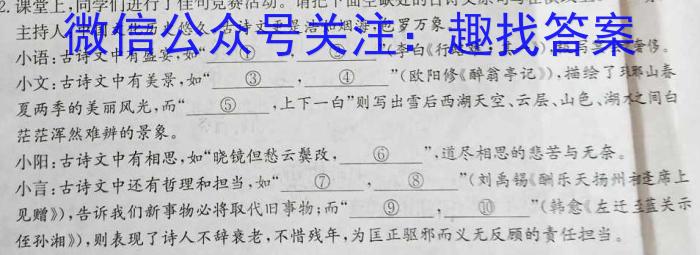 2. 课堂上,同学们进行了佳句竞赛活动。请把下面空缺处的古诗文
主持人
微信公众号关注：趣找答案
小语:古诗文中有盛宴,如“ ① , ② (李白《行
小文:古诗文中有美景,如“ ③ , ④ ”(欧阳修《醉翁亭记》),描绘了琅琊山春
夏两季的美丽风光,而“ ⑤ ,上下一白”则写出雪后西湖天空、云层、山色、湖水之间白
茫茫浑然难辨的景象。
小阳:古诗文中有相思,如“晓镜但愁云鬓改, ⑥ ”,道尽相思的悲苦与无奈。
小言:古诗文中还有哲理和担当,如“ ⑦ , ⑧ ”(刘禹锡《酬乐天扬州初逢席上
见赠》),告诉我们新事物必将取代旧事物;而“ ⑨ , ⑩ ”(韩愈《左迁至蓝关示
侄孙湘》),则表现了诗人不辞衰老,不惜残年,为匡正驱邪而义无反顾的责任担当。